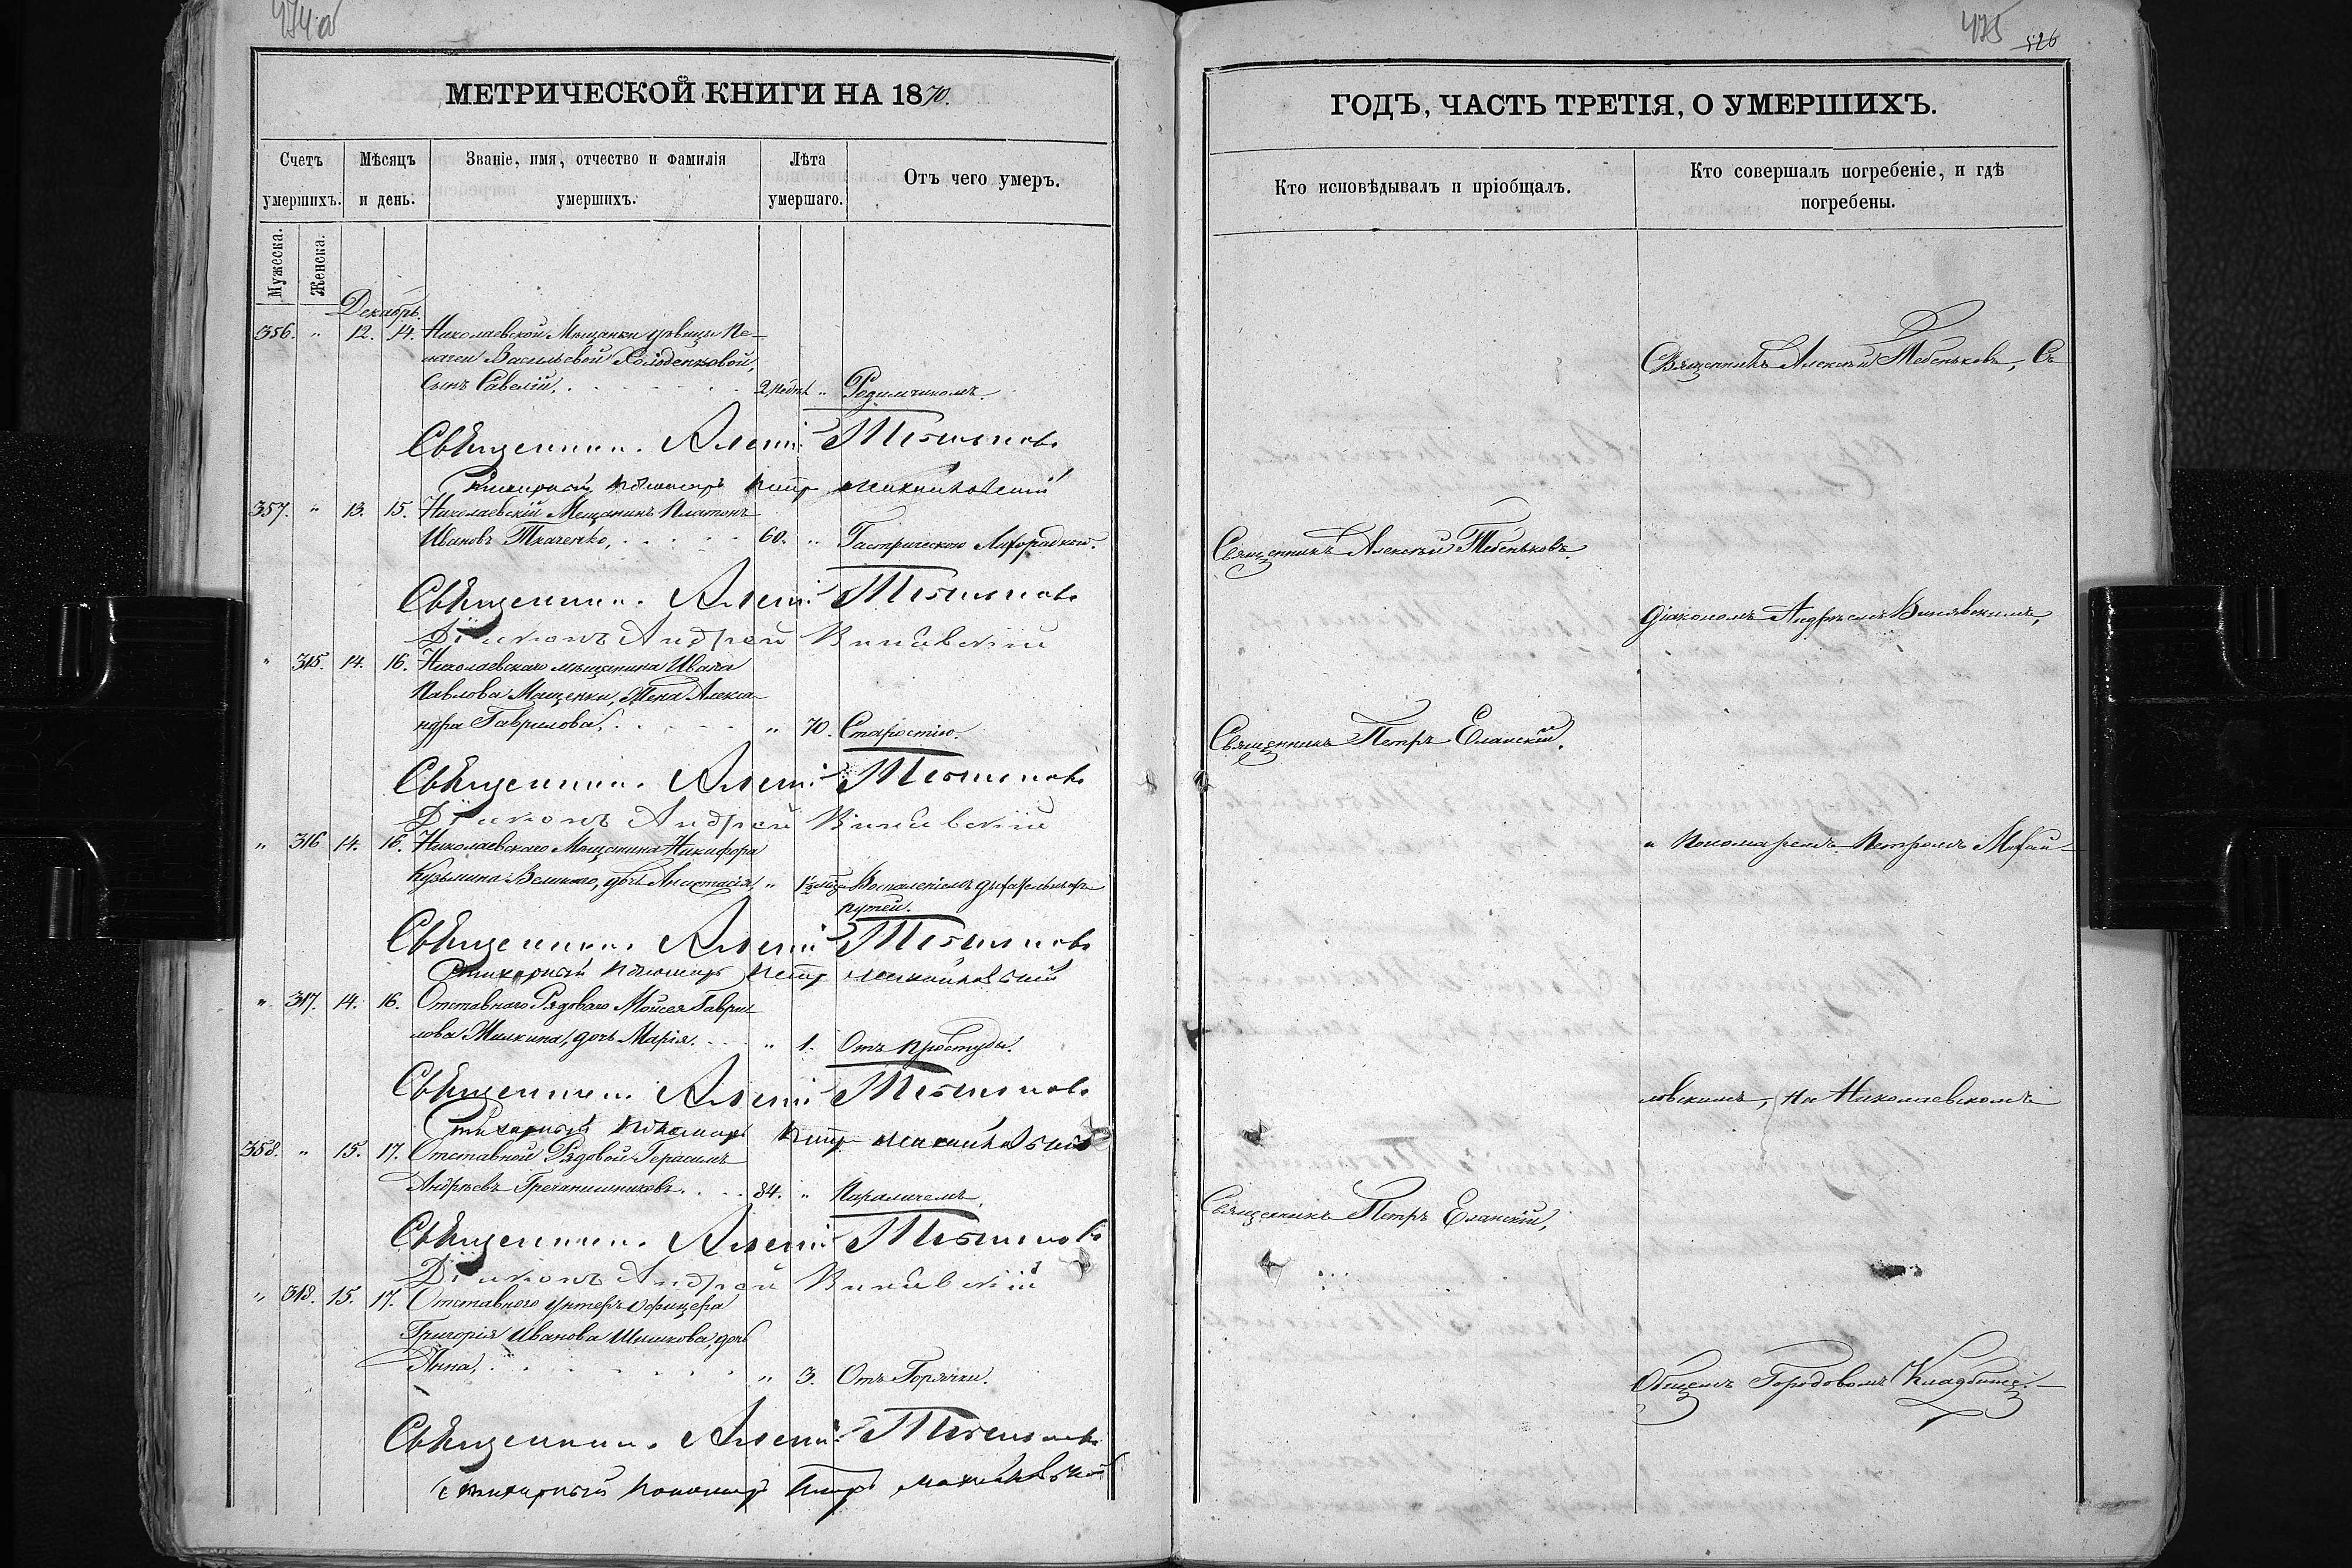 475
526
МЕТРИЧЕСКОЙ КНИГИ НА 1870.
Счетъ умершихъ.
Мѣсяцъ и день.
Званіе, имя, отчество и фамилія умершихъ.
Лѣта умершаго.
Отъ чего умеръ.
Мужеска.
Женска.
Декабрь.
356. " 12. 14. Николаевской Мѣщанки дѣвицы Пе-
лагеи Васильевой Холоденковой,
Сынъ Савелій, 2 недѣл. " Родимчикомъ.
Священникъ Алексій Тебеньковъ
Стихарный Пономарь Петръ Михайловскій
357. " 13. 15. Николаевскій Мѣщанинъ Платонъ
Ивановъ Ткаченко, 60. " Гастрическою Лихорадкою.
Священникъ Алексій Тебеньковъ
Діаконъ Андрей Винявскій
" 315. 14. 16. Николаевскаго мѣщанина Ивана
Павлова Мащенки, Жена Алекса-
ндра Гаврилова, " 70. Старостію.
Священникъ Алексій Тебеньковъ
Діаконъ Андрей Винявскій
" 316 14. 16. Николаевскаго Мѣщанина Никифора
Кузьмина Великаго, дочь Анастасія, " 1½ мѣс. Воспаленіемъ дыхательныхъ
путей.
Священникъ Алексій Тебеньковъ
Стихарный Пономарь Петръ Михайловскій
" 317. 14. 16. Отставнаго Рядоваго Мойсея Гаври-
лова Жилкина, дочь Марія. " 1. Отъ простуды.
Священникъ Алексій Тебеньковъ
Стихарный Пономарь Петръ Михайловскій
358. " 15. 17. Отставной Рядовой Герасимъ
Андреевъ Гречанишниковъ. 84. " Параличемъ.
Священникъ Алексій Тебеньковъ
Діаконъ Андрей Винявскій
" 318. 15. 17. Отставнаго унтеръ офицера
Григорія Иванова Шишкова, дочь
Анна, " 3. Отъ Горячки.
Священникъ Алексій Тебеньковъ
Стихарный Пономарь Петръ Михайловскій
ГОДЪ, ЧАСТЬ ТРЕТІЯ, О УМЕРШИХЪ.
Кто исповѣдывалъ и пріобщалъ.
Кто совершалъ погребеніе, и гдѣ
погребены.
Священникъ Алексѣй Тебеньковъ, Съ
Священникъ Алексѣй Тебеньковъ.
діакономъ Андреемъ Винявскимъ,
Священникъ Петръ Еланскій.
и Пономаремъ Петромъ Михай-
ловскимъ, На Николаевскомъ
Священникъ Петръ Еланскій,
Общемъ Городовомъ Кладбище.